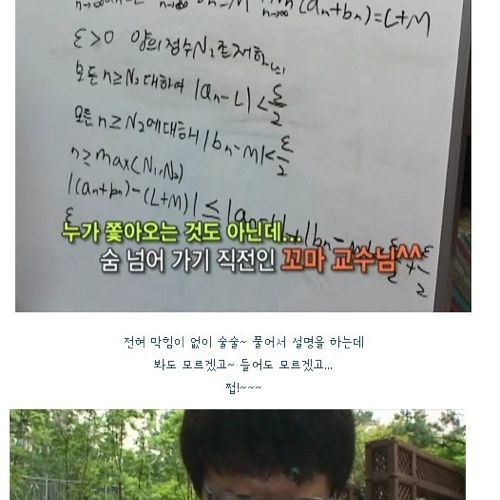 lim(an+bn)=L+M
ε>0 양의정수N2존재하니
모든 n≥N2 대하여 |an-L|<ε/2
모든 n≥N2에대해|bn-M|<ε/2
n≥max(N1,N2)
|(an+bn)-(L+M)|≤|an-L|+|bn-M|
누가 쫓아오는 것도 아닌데...
숨 넘어 가기 직전인 꼬마 교수님^^
전혀 막힘이 없이 술술~ 풀어서 설명을 하는데
봐도 모르겠고~ 들어도 모르겠고...
쩝!~~~